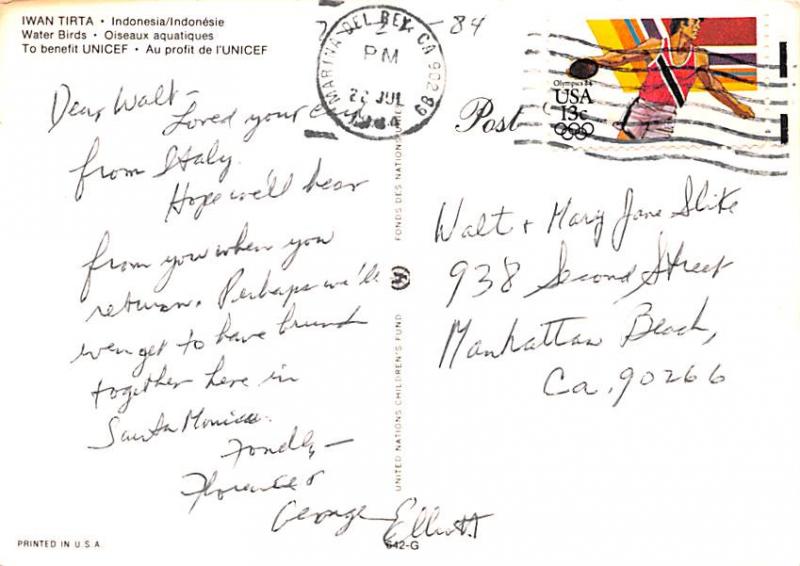 IWAN TIRTA • Indonesia/Indonésie
Water Birds • Oiseaux aquatiques
To benefit UNICEF • Au profit de l'UNICEF
84
MARINA DEL REY, CA 902
PM
22 JUL
1984
Olympics 84
USA
13c
Post
Dear Walt –
Loved your
from Italy.
Hope we'll hear
from you when you
return. Perhaps we'll
even get to have brunch
together here in
Santa Monica.
Fondly –
Florence &
George Elliott
UNITED NATIONS CHILDREN'S FUND
FONDS DES NATIONS
Walt + Mary Jane Slike
938 Second Street
Manhattan Beach,
Ca. 90266
PRINTED IN U.S.A.
642-G